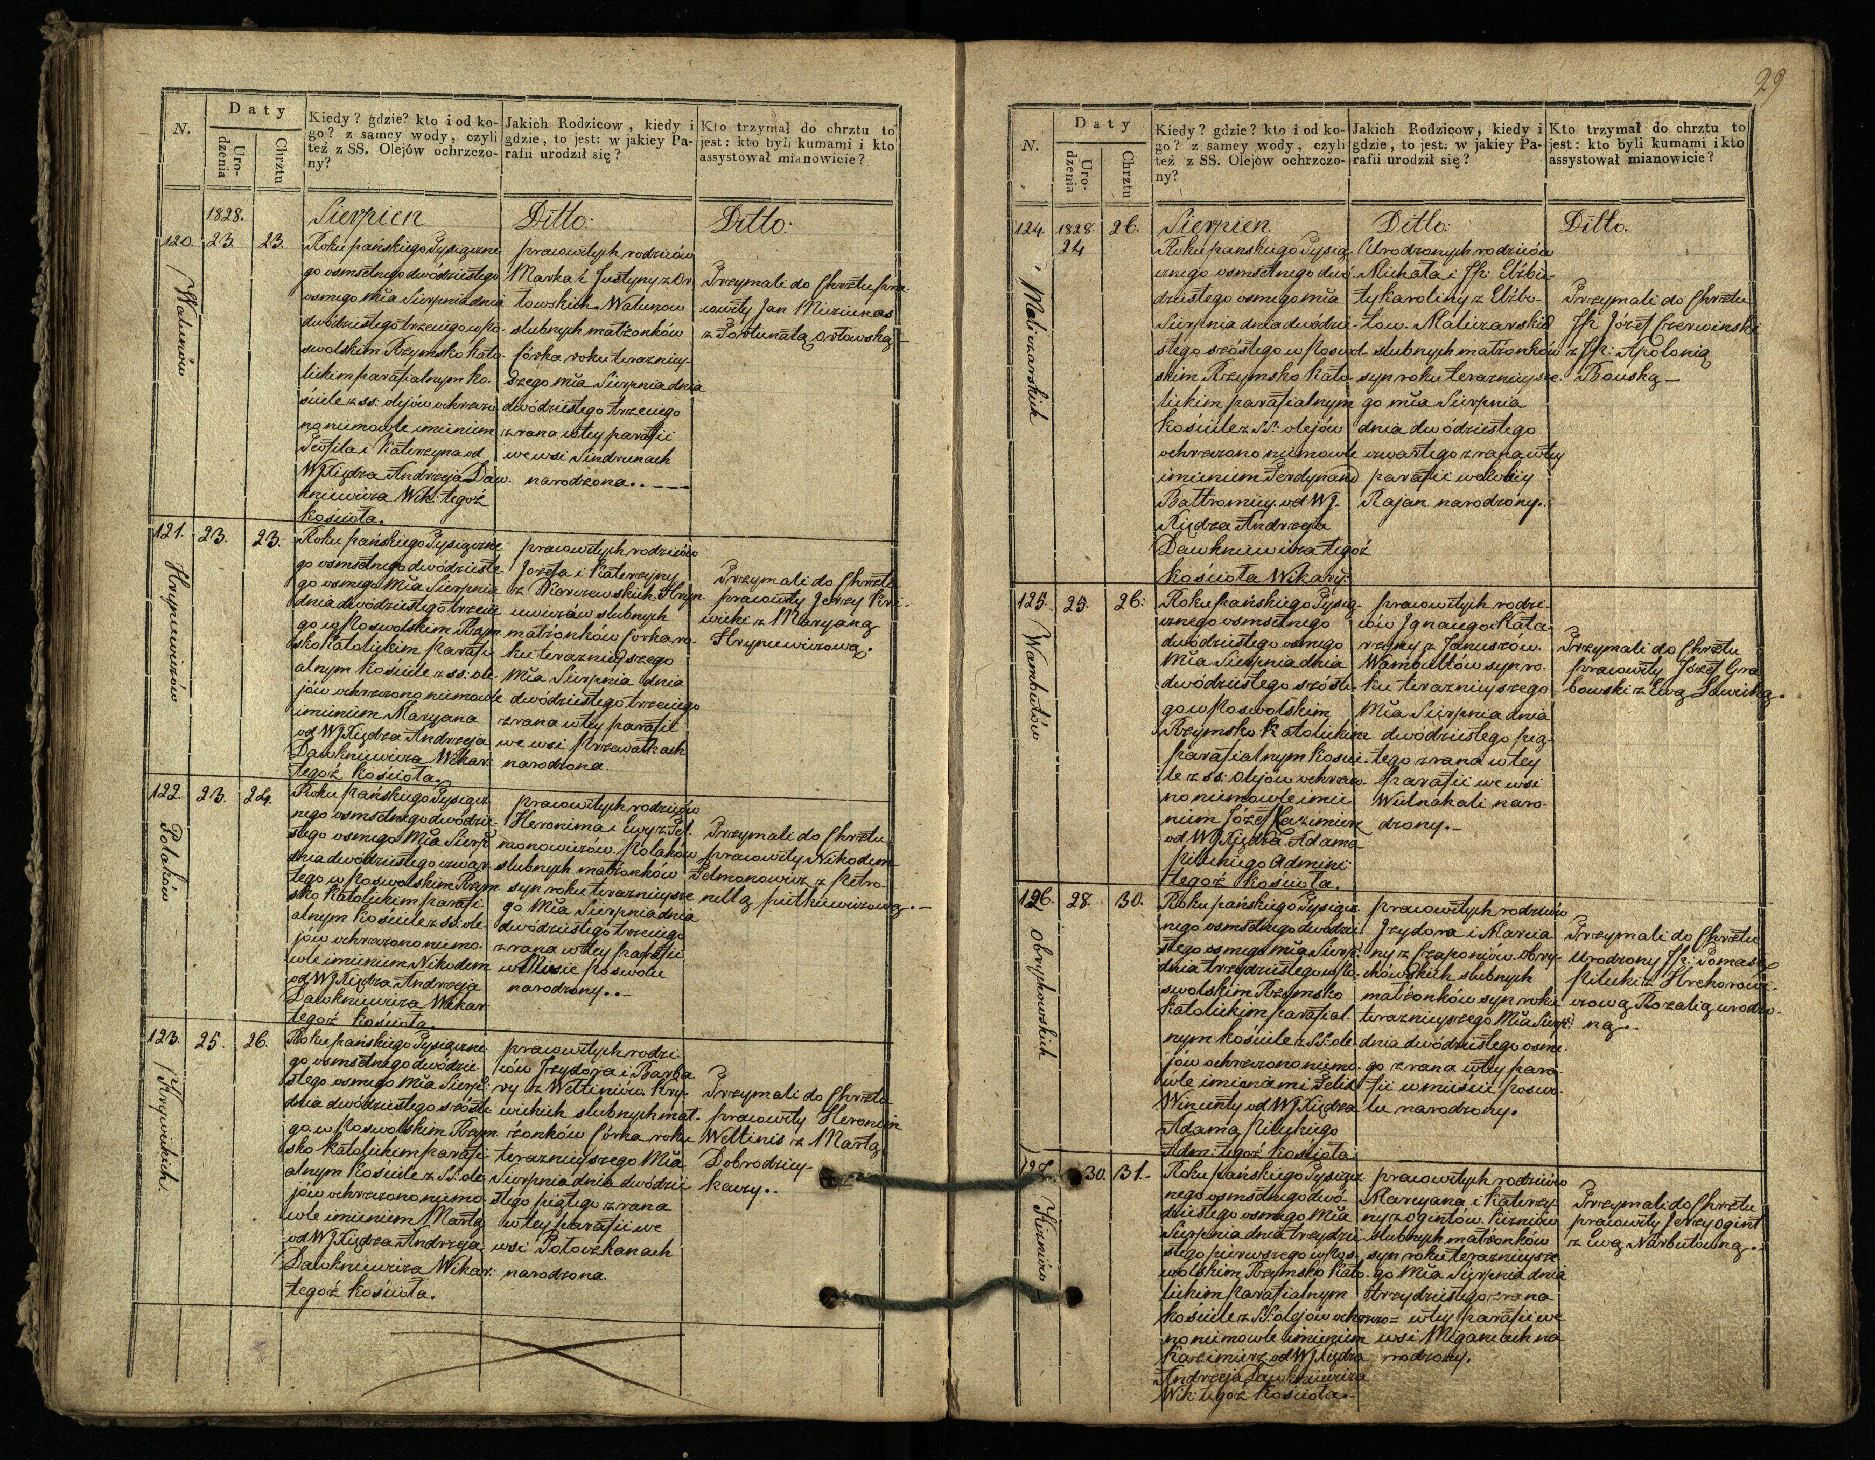 N.
Daty
Uro-
dzenia
Chrztu
Kiedy? gdzie? kto i od ko-
go? z samey wody, czyli
też z SS. Olejów ochrzczo-
ny?
Jakich Rodzicow, kiedy i
gdzie, to jest: w jakiey Pa-
rafii urodził się?
Kto trzymał do chrztu to
jest: kto byli kumami i kto
assystował mianowicie?
1828.
Sierpien
Ditto:
Ditto:
120.
23.
23.
Walunów
Roku pańskiego Tysiączne
go osmsetnego dwódziestego
osmego Mca Sierpnia dnia
dwódziestego trzeciego w Po
swolskim Rzymsko Kato
lickim parafialnym Ko
ściele z ss: olejów ochrzczo
no niemowle imieniem
Teofila i Katerzyna od
WJ Xiędza Andrzeja Daw-
kniewicza Wik: tegoż
Kościoła.
pracowitych rodziców
Marka i Justyny z Or
łowskich Walunow
slubnych małżonków
córka roku terazniey-
szego Mca Sierpnia dnia
dwódziestego trzeciego
zrana w tey parafii
we wsi Sindrunach
narodzona.
Trzymali do Chrztu pra-
cowity Jan Miziunas
z Fortunatą Orłowską
121.
23.
23.
Hryniewiczów
Roku pańskiego Tysiączne
go osmsetnego dwódzieste
go osmego Mca Sierpnia
dnia dwódziestego trzecie
go w Poswolskim Rzym
sko Katolickim parafi
alnym Kościele z ss: ole
jów ochrzczono niemowle
imieniem Maryana
od WJ Xiędza Andrzeja
Dawkniewicza Wikar:
tegoż Kościoła.
pracowitych rodziców
Jozefa i Katerzyny
z Karczewskich Hryn
iewiczów slubnych
małżonków córka ro-
ku teraznieyszego
Mca Sierpnia dnia
dwódziestego trzeciego
zrana w tey parafii
we wsi Krzewatkach
narodzona.
Trzymali do Chrztu
pracowity Jerzy Kri-
wicki z Maryaną
Hryniewiczową.
122.
23.
24.
Polaków
Roku pańskiego Tysiącz
nego osmsetnego dwódzie
stego osmego Mca Sierp:
dnia dwódziestego czwar
tego w Poswolskim Rzym
sko Katolickim parafi
alnym Kościele z ss: ole
jów ochrzczono niemo-
wle imieniem Nikodem
od WJ Xiędza Andrzeja
Dawkniewicza Wikar
tegoż Kościoła.
pracowitych rodziców
Heronima i Ewy z Pel-
monowiczow Polaków
slubnych małżonków
syn roku teraznieysze
go Mca Sierpnia dnia
dwódziestego trzeciego
zrana w tey parafii
w Miescie Poswolu
narodzony.
Trzymali do Chrztu
pracowity Nikodem
Pelmonowicz z Petro-
nellą Pietkiewiczową.
123.
25.
26.
Krywickich.
Roku pańskiego Tysiączne
go osmsetnego dwódzie-
stego osmego Mca Sierp:
dnia dwódziestego szóste
go w Poswolskim Rzym
sko Katolickim parafi
alnym Kościele z SS. ole
jów ochrzczono niemo-
wle imieniem Marta
od WJ Xiędza Andrzeja
Dawkniewicza Wikar:
tegoż Kościoła.
pracowitych rodzi-
ców Jzydora i Barba
ry z Wettinisów Kry-
wickich slubnych mał-
żonków córka roku
teraznieyszego Mca
Sierpnia dnia dwódzie
stego piątego zrana
w tey parafii we
wsi Potoczkanach
narodzona.
Trzymali do Chrztu
pracowity Heronim
Wettinis z Martą
Dobrodziey-
kawy.
29
N.
Daty
Uro-
dzenia
Chrztu
Kiedy? gdzie? kto i od ko-
go? z samey wody, czyli
też z SS. Olejów ochrzczo-
ny?
Jakich Rodzicow, kiedy i
gdzie, to jest: w jakiey Pa-
rafii urodził się?
Kto trzymał do chrztu to
jest: kto byli kumami i kto
assystował mianowicie?
124.
1828.
24
26.
Sierpien
Ditto:
Ditto.
Maliczarskich
Roku pańskiego Tysią-
cznego osmsetnego dwó
dziestego osmego Mca
Sierpnia dnia dwódzie-
stego szóstego w Poswol
skim Rzymsko Kato
lickim parafialnym
Kościele z SS: olejów
ochrzczono niemowle
imieniem Ferdynand
Bałtromiey od WJ.
Xiędza Andrzeja
Dawkniewicza tegoż
Kościoła Wikary.
Urodzonych rodziców
Michała i JP: Elżbie-
ty Karoliny z Elżbo-
tow Maliczarskich
slubnych małżonków
syn roku teraznieysze-
go mca Sierpnia
dnia dwódziestego
czwartego zrana w tey
parafii w okolicy
Rajan narodzony.
Trzymali do Chrztu
JP: Józef Czerwinski
z JP: Apolonią
Bouską
125.
25.
26.
Wambutów
Roku pańskiego Tysią-
cznego osmsetnego
dwódziestego osmego
Mca Sierpnia dnia
dwódziestego szóste-
go w Poswolskim
Rzymsko Katolickim
parafialnym Koście-
le z ss: olejów ochrzczo-
no niemowle imie
niem Józef Kazimierz
od WJ Xiędza Adama
Pileckiego Admini:
tegoż Kościoła.
pracowitych rodzi-
ców Jgnacego i Kata-
rzyny z Januszów
Wambuttów syn ro-
ku teraznieyszego
Mca Sierpnia dnia
dwódziestego pią-
tego zrana w tey
parafii we wsi
Wulnakali naro-
dzony.
Trzymali do Chrztu
pracowity Jozef Gra
bowski z Ewą Sawicką.
126.
28.
30.
Obrychowskich
Roku pańskiego Tysiącz
nego osmsetnego dwódzie
stego osmego Mca Sierp:
dnia trzydziestego w Po
swolskim Rzymsko
Katolickim parafial
nym Kościele z SS. ole
jów ochrzczono niemo-
wle imionami Felix
Wincenty od WJ Xiędza
Adama Pileckiego
Adm: tegoż Kościoła
pracowitych rodziców
Jzydora i Marcia
ny z Czaponiów Obry-
chowskich slubnych
małżonków syn roku
teraznieyszego Mca Sierp:
dnia dwódziestego osme-
go zrana w tey para
fii w mieście Poswo-
lu narodzony.
Trzymali do Chrztu
Urodzony JP: Tomasz
Pilecki z Hrehorowi-
czową Rozalią urodzo-
ną.
127.
30.
31.
Kizniów
Roku pańskiego Tysiącz
nego osmsetnego dwó-
dziestego osmego Mca
Sierpnia dnia trzydzie
stego pierwszego w Pos
wolskim Rzymsko Kato
lickim parafialnym
Kościele z SS. olejów ochrzczo=
no niemowle imieniem
Kazimierz od WJ Xiędza
Andrzeja Dawkniewicza
Wik: tegoż Kościoła.
pracowitych rodziców
Maryana i Katerzy-
ny z Ogintów Kizniów
slubnych małżonków
syn roku teraznieysze
go Mca Sierpnia dnia
trzydziestego zrana
w tey parafii we
wsi Meganciach na
rodzony.
Trzymali do Chrztu
pracowity Jerzy Ogint
z Ewą Narbutowną.